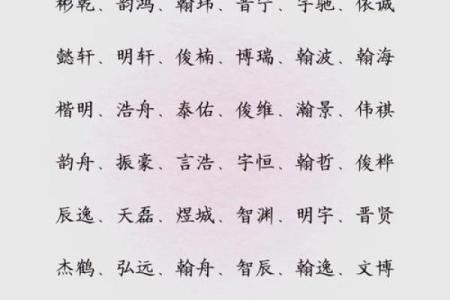 彬乾、韵鸿、翰玮、晋宁、宇驰、依诚
懿轩、明轩、俊楠、博瑞、翰波、翰海
楷明、浩舟、泰佑、俊维、瀚景、伟祺
韵舟、振豪、言浩、宇恒、翰哲、俊桦
辰逸、天磊、煜城、智渊、明宇、晋贤
杰鹤、弘远、翰舟、智辰、翰逸、文博